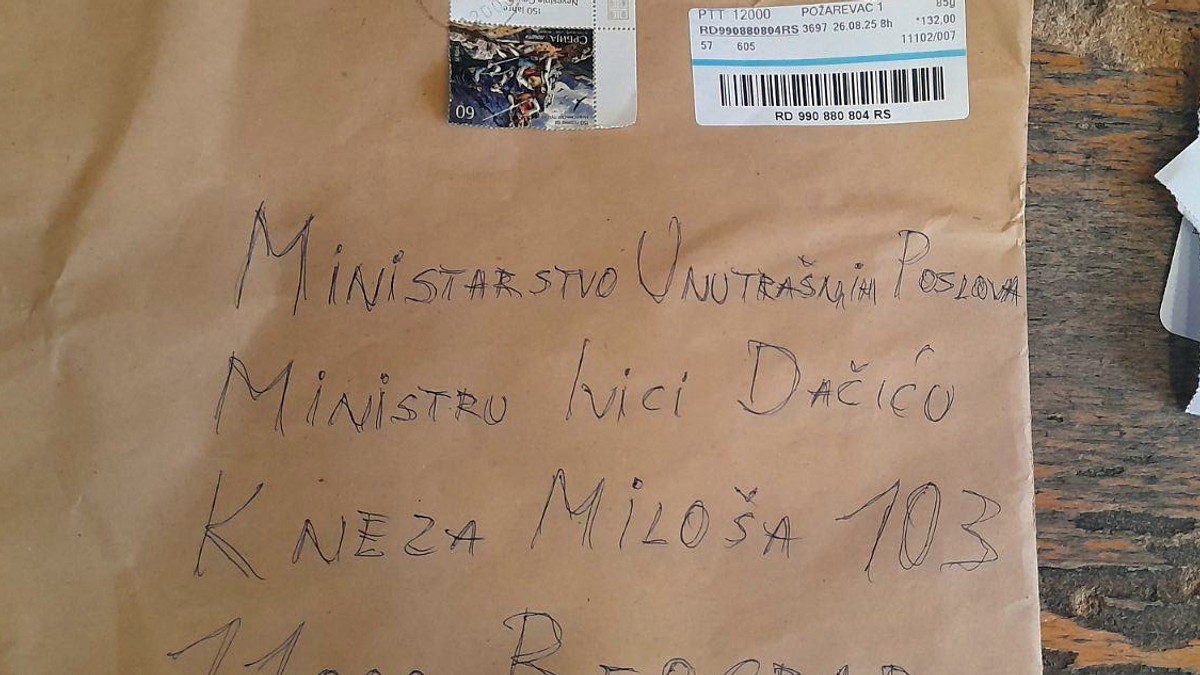 150 Jahre
СРБИЈА
60
PTT 12000 POŽAREVAC 1 85g
RD990880804RS 3697 26.08.25 8h *132,00
57 605 11102/007
RD 990 880 804 RS
MINISTARSTVO UNUTRAŠNJIH POSLOVA
MINISTRU IVICI DAČIĆU
KNEZA MILOŠA 103
11000 BEOGRAD